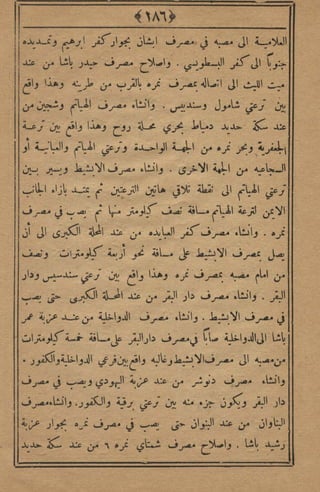 ﴿٢٨٦﴾
العلامية الى مصبه في مصرف ايشان بجوار كفر ابرهيم وتمديده
جنوباً الى كفر البسطويسي . واصلاح مصرف حيدر باشا من عند
ميت الليث الى اتصاله بمصرف نمره بالقرب من طرينه وهذا واقع
بين ترعتي شامول وسنديس . وانشاء مصرف الهياتم وشجين من
عند سكة حديد دمياط بحري محلة روح وهذا واقع بين ترعة
الجعفرية وبحر نمره من الجهة الواحدة وترعتي الهياتم والعباية أو
السجاعيه من الجهة الاخرى . وانشاء مصرف الابشيط ويسير بين
ترعتي الهياتم الى نقطة تلاقي هاتين الترعتين ثم يمتد بازاء الجانب
الايمن لترعة الهياتم مسافة نصف كيلومتر منها ثم يصب في مصرف
نمره . وانشاء مصرف كفر العبايده من عند المحلة الكبرى الى أن
يصل بمصرف الابشيط على مسافة نحو أربعة كيلومترات ونصف
من امام مصبه بمصرف نمره وهذا واقع بين ترعتي سندسيس ودار
البقر . وانشاء مصرف دار البقر من عند المحلة الكبرى حتى يصب
في مصرف الابشيط . وانشاء مصرف الدواخلية من عند عزبة عمر
باشا الى الدواخلية صاباً في مصرف دار البقر على مسافة خمسة كيلومترات
من مصبه الى مصرف الابشيط وغالبه واقع بين فرعي الدواخلية والكفور .
وانشاء مصرف دنوشر من عند عزبة اليهودي ويصب في مصرف
دار البقر ويكون جزء منه بين ترعتي برقية والكفور . وانشاء مصرف
البنوان من عند البنوان حتى يصب في مصرف نمره بجوار عزبة
رشيد باشا . واصلاح مصرف شمتاي نمره ٦ من عند سكة حديد